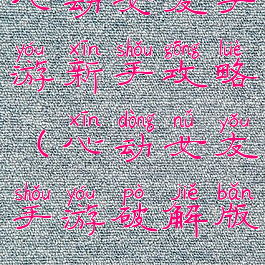 心动女友手
yóu xīn shǒu gōng lüè
游新手攻略
xīn dòng nǚ yǒu
(心动女友
shǒu yóu pò jiě bǎn
手游破解版